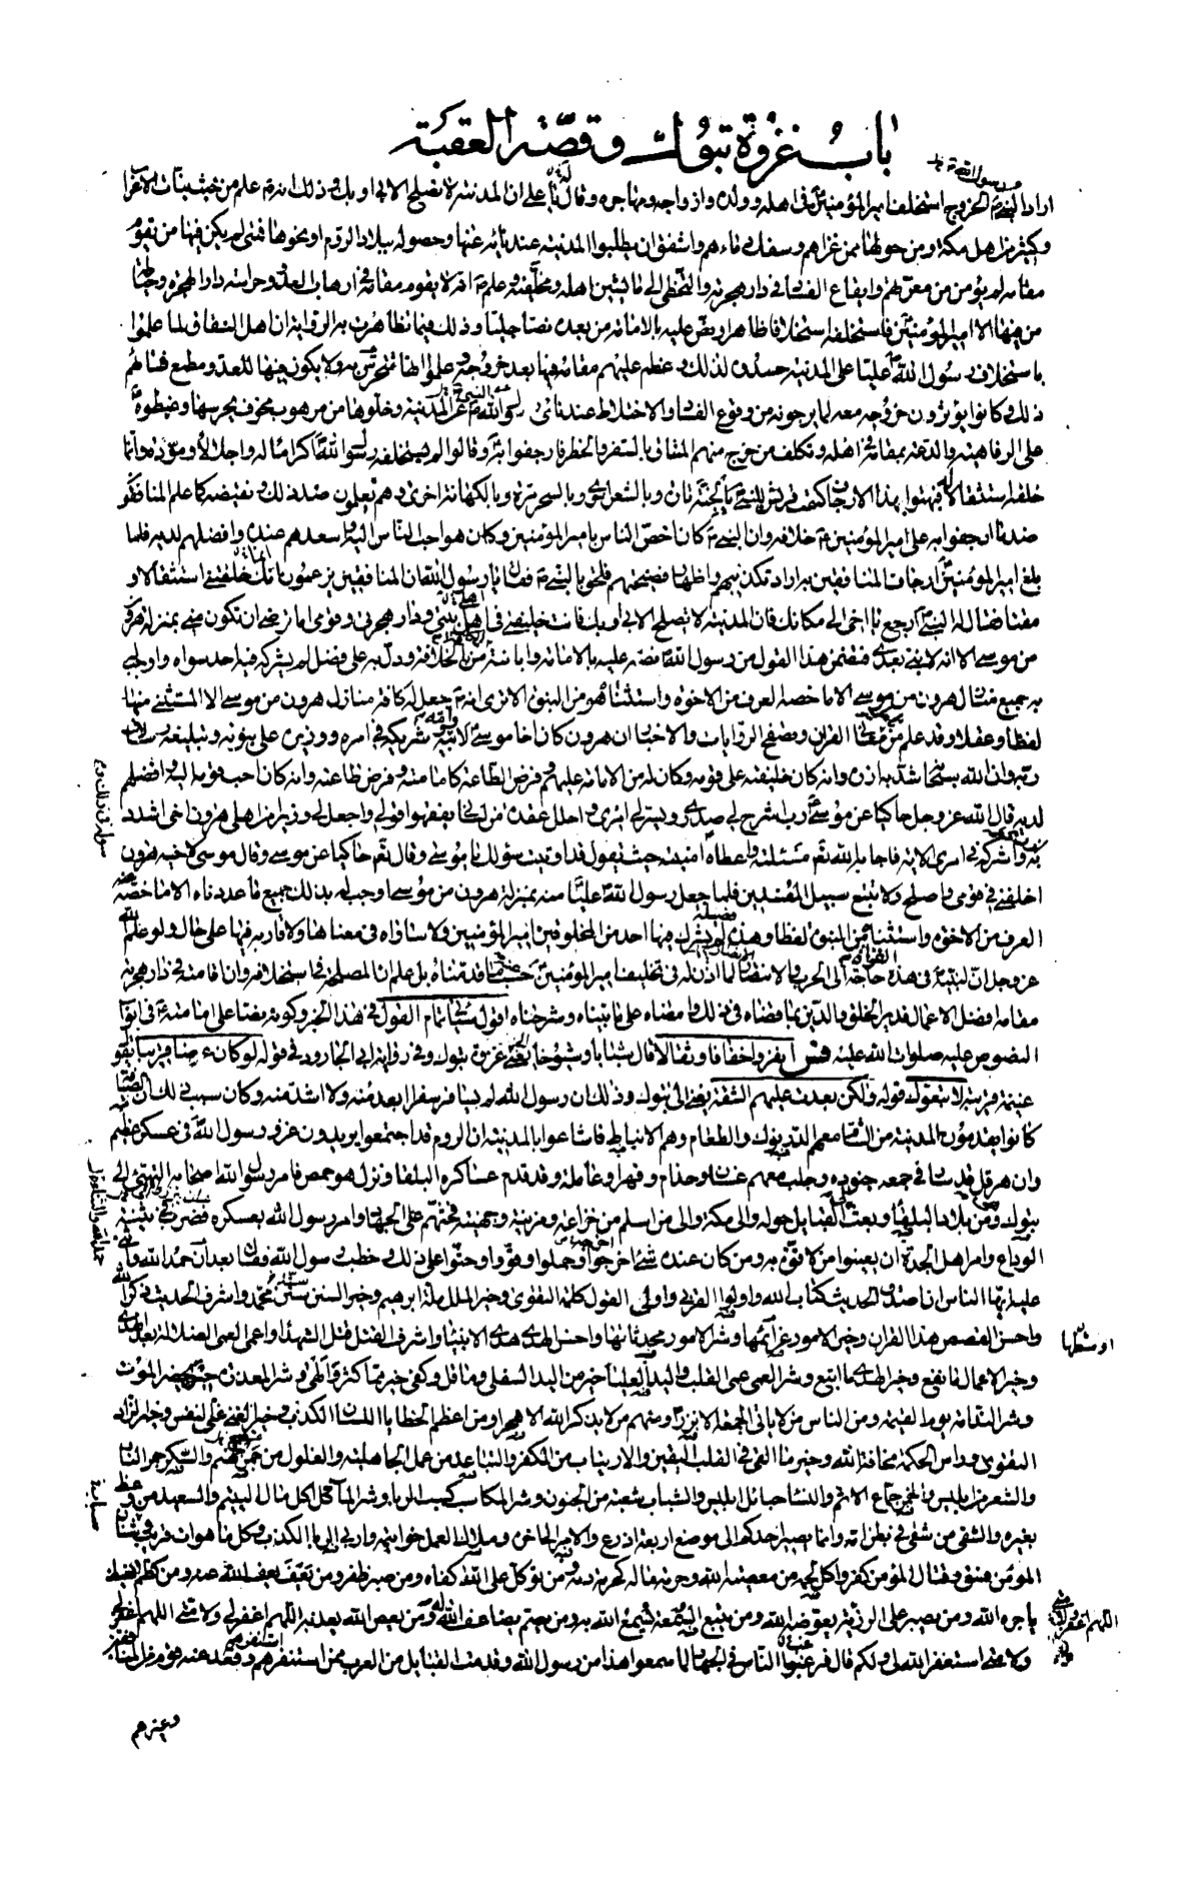 باب غزوة تبوك وقصّة العقبة
اراد النبي الخروج استخلف امير المؤمنين في اهله وولده وازواجه ومهاجره وقال يا علي ان المدينة لا تصلح الا بي او بك وذلك انه علم من خبث نيات الاعراب
وكثير من اهل مكة ومن حولها ممن غزاهم وسفك دماءهم واشفق ان يطلبوا المدينة عند نأيه عنها وحصوله ببلاد الروم او نحوها فمتى لم يكن فيها من يقوم
مقامه لم يؤمن من معرتهم وايقاع الفساد في دار هجرته والتخطي الى ما يشين اهله ومخلفيه وعلم انه لا يقوم مقامه في ارهاب العدو وحراسة دار الهجرة وحياطة
من فيها الا امير المؤمنين فاستخلفه استخلافا ظاهرا ونص عليه بالامامة من بعده نصا جليا وذلك فيما تظاهرت به الرواية ان اهل النفاق لما علموا
باستخلاف رسول الله عليا على المدينة حسدوه لذلك وعظم عليهم مقامه فيها بعد خروجه وعلموا انها تتحرس به ولا يكون فيها للعدو مطمع فساءهم
ذلك وكانوا يؤثرون خروجه معه لما يرجونه من وقوع الفساد والاختلاط عند نأي رسول الله عن المدينة وخلوها من مرهوب مخوف يحرسها وغبطوه
على الرفاهية والدعة بمقامه في اهله وتكلف من خرج منهم المشاق بالسفر والخطر فارجفوا به وقالوا لم يستخلفه رسول الله اكراما له واجلالا ومودة وانما
خلفه استثقالا له فبهتوا بهذا الارجاف كبهت قريش للنبي بالجنة تارة وبالشعر اخرى وبالسحر مرة وبالكهانة اخرى وهم يعلمون ضد ذلك ونقيضه كما علم المنافقون
ضد ما ارجفوا به على امير المؤمنين خلافه وان النبي كان اخص الناس بامير المؤمنين وكان هو احب الناس اليه واسعدهم عنده وافضلهم لديه فلما
بلغ امير المؤمنين ارجاف المنافقين به اراد تكذيبهم واظهار فضيحتهم فلحق بالنبي فقال يا رسول الله ان المنافقين يزعمون انك خلفتني استثقالا و
مقتا فقال له النبي ارجع يا اخي الى مكانك فان المدينة لا تصلح الا بي او بك فانت خليفتي في اهل بيتي ودار هجرتي وقومي اما ترضى ان تكون مني بمنزلة هرون
من موسى الا انه لا نبي بعدي فتضمن هذا القول من رسول الله نصه عليه بالامامة وابانته من الكافة بالخلافة ودل به على فضل لم يشركه فيه احد سواه واوجب له
به جميع منازل هرون من موسى الا ما خصه العرف من الاخوة واستثناه هو من النبوة الا ترى انه جعل له كافة منازل هرون من موسى الا المستثنى منها
لفظا وعقلا وقد علم من معاني القران وتصفح الروايات والاخبار ان هرون كان اخا موسى لابيه وامه وشريكه في امره ووزيره على نبوته وتبليغه رسالات
ربه وان الله سبحانه شد به ازره وانه كان خليفته على قومه وكان له من الامامة عليهم وفرض الطاعة كامامته وفرض طاعته وانه كان احب قومه اليه وافضلهم
لديه قال الله عز وجل حاكيا عن موسى رب اشرح لي صدري ويسر لي امري واحلل عقدة من لساني يفقهوا قولي واجعل لي وزيرا من اهلي هرون اخي اشدد
به ازري واشركه في امري الاية فاجاب الله تعم مسئلته واعطاه امنيته حيث يقول قد اوتيت سؤلك يا موسى وقال تعم حاكيا عن موسى وقال موسى لاخيه هرون
اخلفني في قومي واصلح ولا تتبع سبيل المفسدين فلما جعل رسول الله عليا منه بمنزلة هرون من موسى اوجب له بذلك جميع ما عددناه الا ما خصه
العرف من الاخوة واستثناه من النبوة لفظا وهذه فضيلة لم يشرك فيها احد من المخلوقين امير المؤمنين ولا ساواه في معناها ولا قاربه فيها على حال ولو علم الله
عز وجل ان لنبيه في هذه الغزاة حاجة الى الحرب والانصار لما اذن له في تخليف امير المؤمنين حسب ما قدمناه بل علم ان المصلحة في استخلافه وان اقامته في دار هجرته
مقامه افضل الاعمال فدبر الخلق والدين بما قضاه في ذلك وامضاه على ما بيناه وشرحناه اقول سيأتي تمام القول في هذا الخبر وكونه نصا على امامته في ابواب
النصوص عليه صلوات الله عليه فس انفروا خفافا وثقالا قال شبابا وشيوخا يعني الى غزوة تبوك وفي رواية ابي الجارود في قوله لو كان عرضا قريبا يقول
غنيمة قريبة لاتبعوك قوله ولكن بعدت عليهم الشقة يعني الى تبوك وذلك ان رسول الله لم يسافر سفرا ابعد منه ولا اشد منه وكان سبب ذلك ان الصيافة
كانوا يقدمون المدينة من الشام معهم الدرنوك والطعام وهم الانباط فاشاعوا بالمدينة ان الروم قد اجتمعوا يريدون غزو رسول الله في عسكر عظيم
وان هرقل قد سار في جمعه جنوده وجلب معهم غسان وجذام وفهرا وعاملة وقد قدم عساكره البلقاء ونزل هو حمص فامر رسول الله اصحابه بالتهيؤ الى
تبوك وهي من بلاد البلقاء وبعث الى القبايل حوله والى مكة والى من اسلم من خزاعة ومزينة وجهينة فحثهم على الجهاد وامر رسول الله بعسكره فضرب في ثنية
الوداع وامر اهل الجدة ان يعينوا من لا قوة به ومن كان عنده شئ اخرجه وحملوا وقووا وحثوا على ذلك وخطب رسول الله فقال بعد ان حمد الله واثنى
عليه ايها الناس ان اصدق الحديث كتاب الله واولى القول كلمة التقوى وخير الملل ملة ابرهيم وخير السنن سنن محمد واشرف الحديث ذكر الله
واحسن القصص هذا القران وخير الامور عزائمها وشر الامور محدثاتها واحسن الهدى هدى الانبياء واشرف القتل قتل الشهداء واعمى العمى الضلالة بعد الهدى
وخير الاعمال ما نفع وخير الهدى ما اتبع وشر العمى عمى القلب واليد العليا خير من اليد السفلى وما قل وكفى خير مما كثر والهى وشر المعذرة حين يحضر الموت
وشر الندامة يوم القيمة ومن الناس من لا ياتي الجمعة الا نزرا ومنهم من لا يذكر الله الا هجرا ومن اعظم الخطايا اللسان الكذب وخير الغنى غنى النفس وخير الزاد
التقوى وراس الحكمة مخافة الله وخير ما القي في القلب اليقين والارتياب من الكفر والتباعد من عمل الجاهلية والغلول من جمر جهنم والسكر جمر النار
والشعر من ابليس والخمر جماع الاثم والنساء حبائل ابليس والشباب شعبة من الجنون وشر المكاسب كسب الربا وشر الماكل اكل مال اليتيم والسعيد من وعظ
بغيره والشقي من شقي في بطن امه وانما يصير احدكم الى موضع اربعة اذرع والامر الى اخره وملاك العمل خواتيمه واربى الربا الكذب وكل ما هو ات قريب وشنان
المؤمن فسق وقتال المؤمن كفر واكل لحمه من معصية الله وحرمة ماله كحرمة دمه ومن توكل على الله كفاه ومن صبر ظفر ومن يعف يعف الله عنه ومن كظم الغيظ
ياجره الله ومن يصبر على الرزية يعوضه الله ومن يتبع السمعة يسمع الله به ومن يصم يضاعف الله له ومن يعص الله يعذبه اللهم اغفر لي ولامتي اللهم اغفر لي
ولامتي استغفر الله لي ولكم قال فرغب الناس في الجهاد لما سمعوا هذا من رسول الله وقدمت القبايل من العرب ممن استنفرهم وقعد عنه قوم من المنافقين
وغيرهم